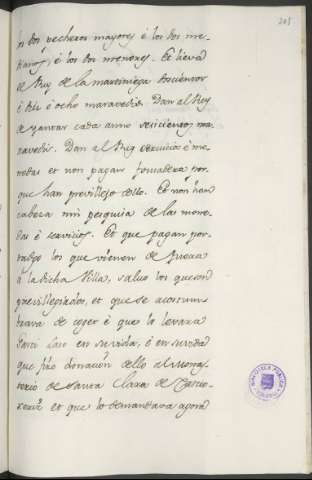 203
los dos pecheros mayores é los dos me-
dianos, é los dos menores. Et lieva el
Rey de la martiniega doscientos
é diez é ocho maravedis. Dan al Rey
de yantar cada anno seiscientos ma-
ravedis. Dan al Rey servicios é mo-
nedas et non pagan fonsadera por-
que han previllejo dello. Et non han
cabeza nin pesquisa de las mone-
das é servicios. Et que pagan por-
tadgo los que vienen de fuera
á la dicha Villa, salvo los que son
previllegiados, et que se acostum-
brava de coger é que lo levara
Garci Laso en su vida, é en su vida
que fizo donacion dello al Monas-
terio de Santa Clara de Carrio-
et que lo demandava agora
BIBLIOTECA PUBLICA